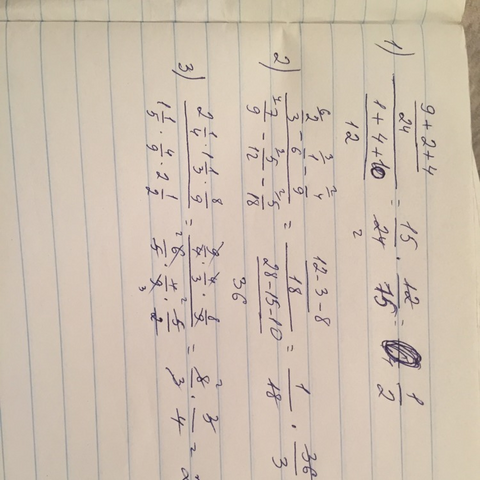 1) 9+2+4
24
1+4+10
12
= 15/24 · 12/15 = 1/2
2) 2/3 - 1/6 - 4/9
7/9 - 5/12 - 5/18
= 12-3-8
18
28-15-10
36
= 1/18 · 36/3
3) 2 1/4 · 1 1/3 · 8/9
1 1/5 · 4/9 · 2 1/2
= 9/4 · 4/3 · 8/9
6/5 · 4/9 · 5/2
= 8/3 · 3/4 =